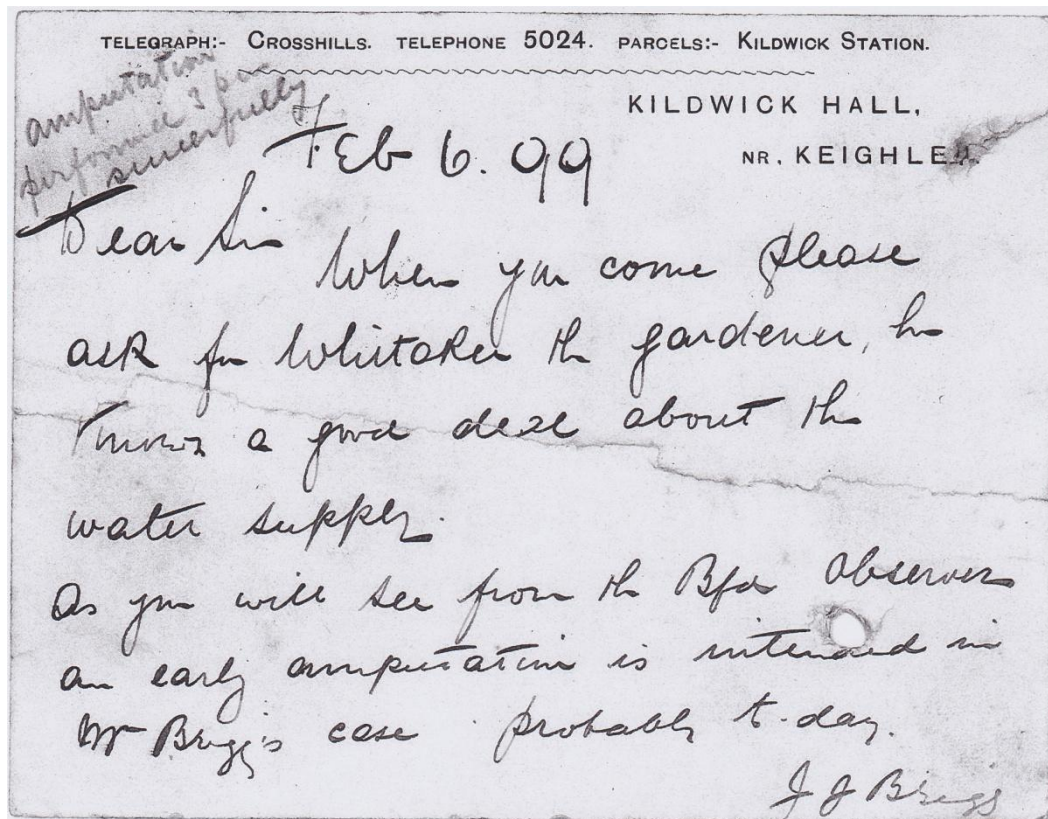 TELEGRAPH:- CROSSHILLS. TELEPHONE 5024. PARCELS:- KILDWICK STATION.
KILDWICK HALL,
NR, KEIGHLEY.
amputation
performed 3 pm
successfully
Feb 6. 99
Dear Sir
When you come please
ask for Whitaker the gardener, he
knows a good deal about the
water supply.
As you will see from the Bfd Observer
an early amputation is intended in
Mr Briggs case probably to-day.
J J Briggs